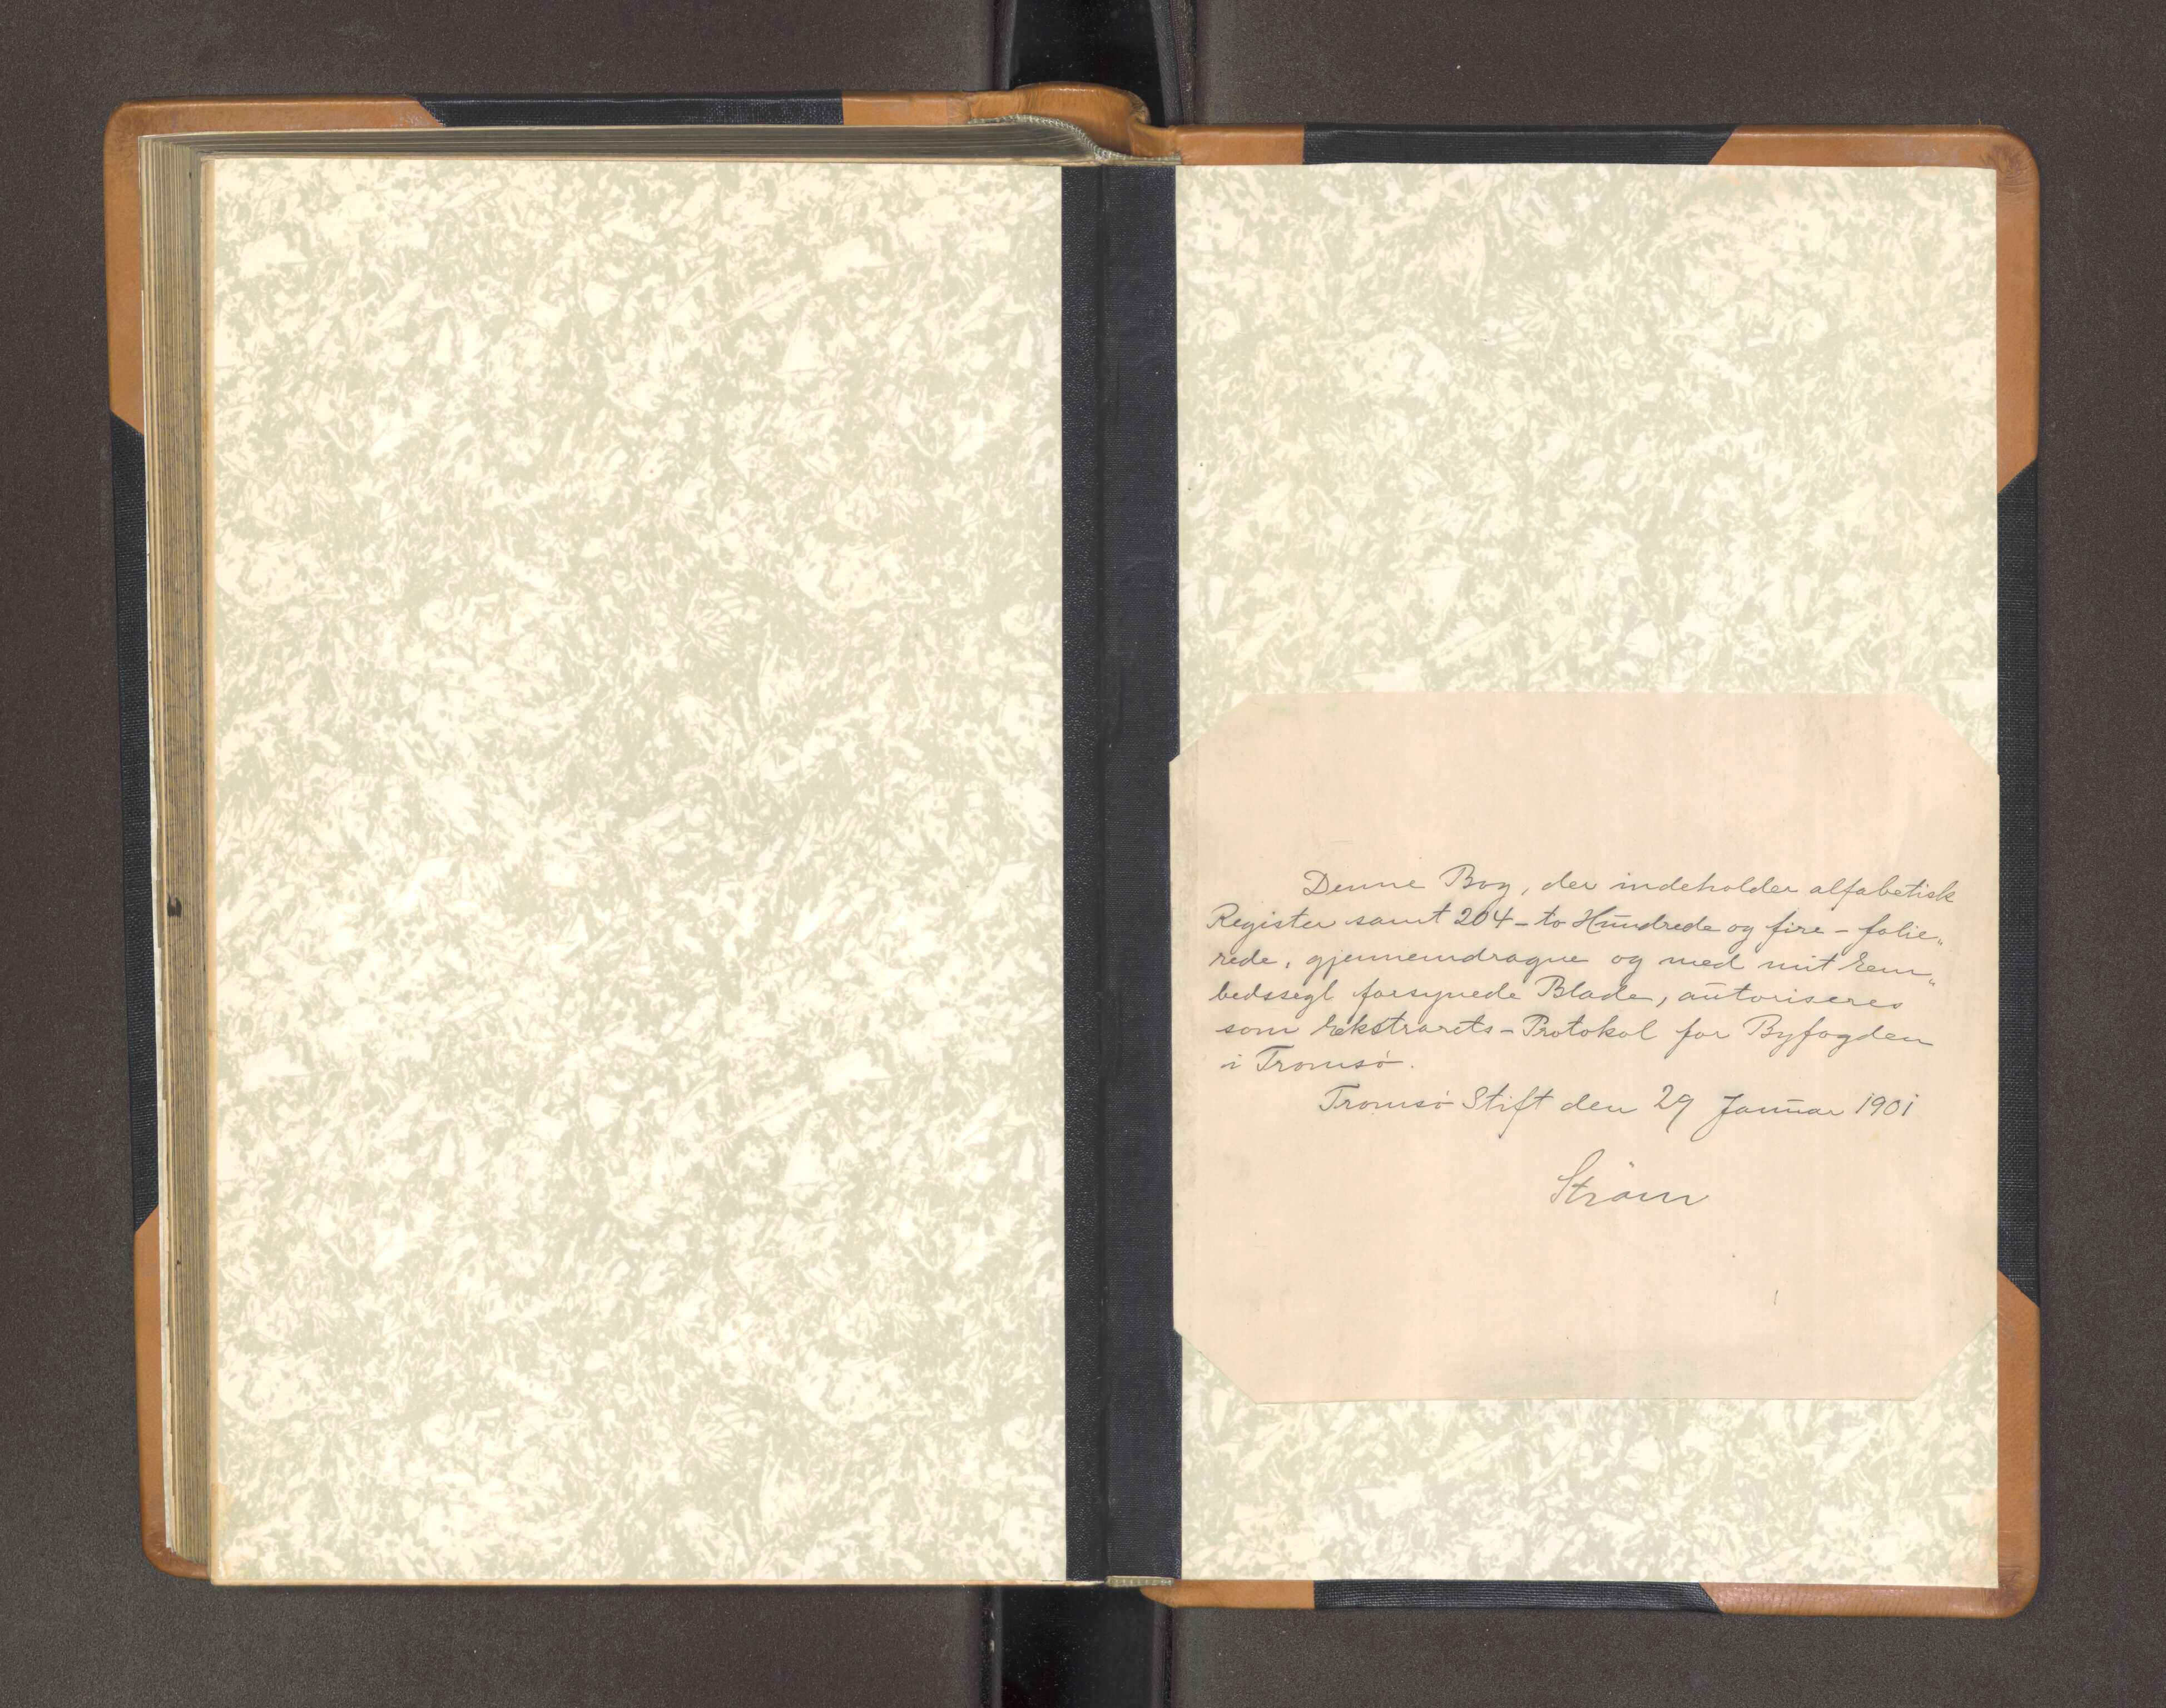 Denne Bog, der indeholder alfabetisk
Register samt 204 - to Hundrede og fire - folie„
rede, gjennemdragne og med mit Em„
bedssegl forsynede Blade, autoriseres
som Ekstrarets-Protokol for Byfogden
i Tromsö.
Tromsö Stift den 29 Januar 1901
Ström